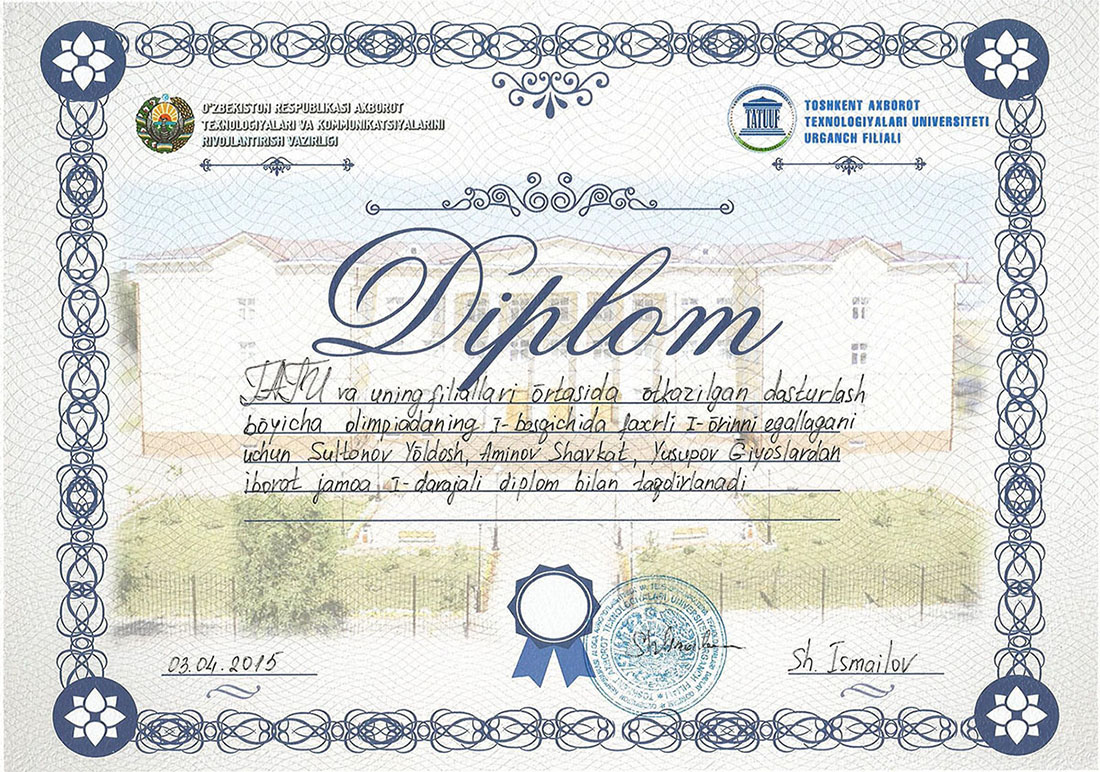 O'ZBEKISTON RESPUBLIKASI AXBOROT
TEXNOLOGIYALARI VA KOMMUNIKATSIYALARINI
RIVOJLANTIRISH VAZIRLIGI
TATUUF
TOSHKENT AXBOROT
TEXNOLOGIYALARI UNIVERSITETI
URGANCH FILIALI
Diplom
TATU va uning filiallari ōrtasida ōtkazilgan dasturlash
bōyicha olimpiadaning I-bosqichida faxrli I-ōrinni egallagani
uchun Sultonov Yōldosh, Aminov Shavkat, Yusupov Ḡiyoslardan
iborat jamoa I-darajali diplom bilan taqdirlanadi
03.04.2015
Sh. Ismailov